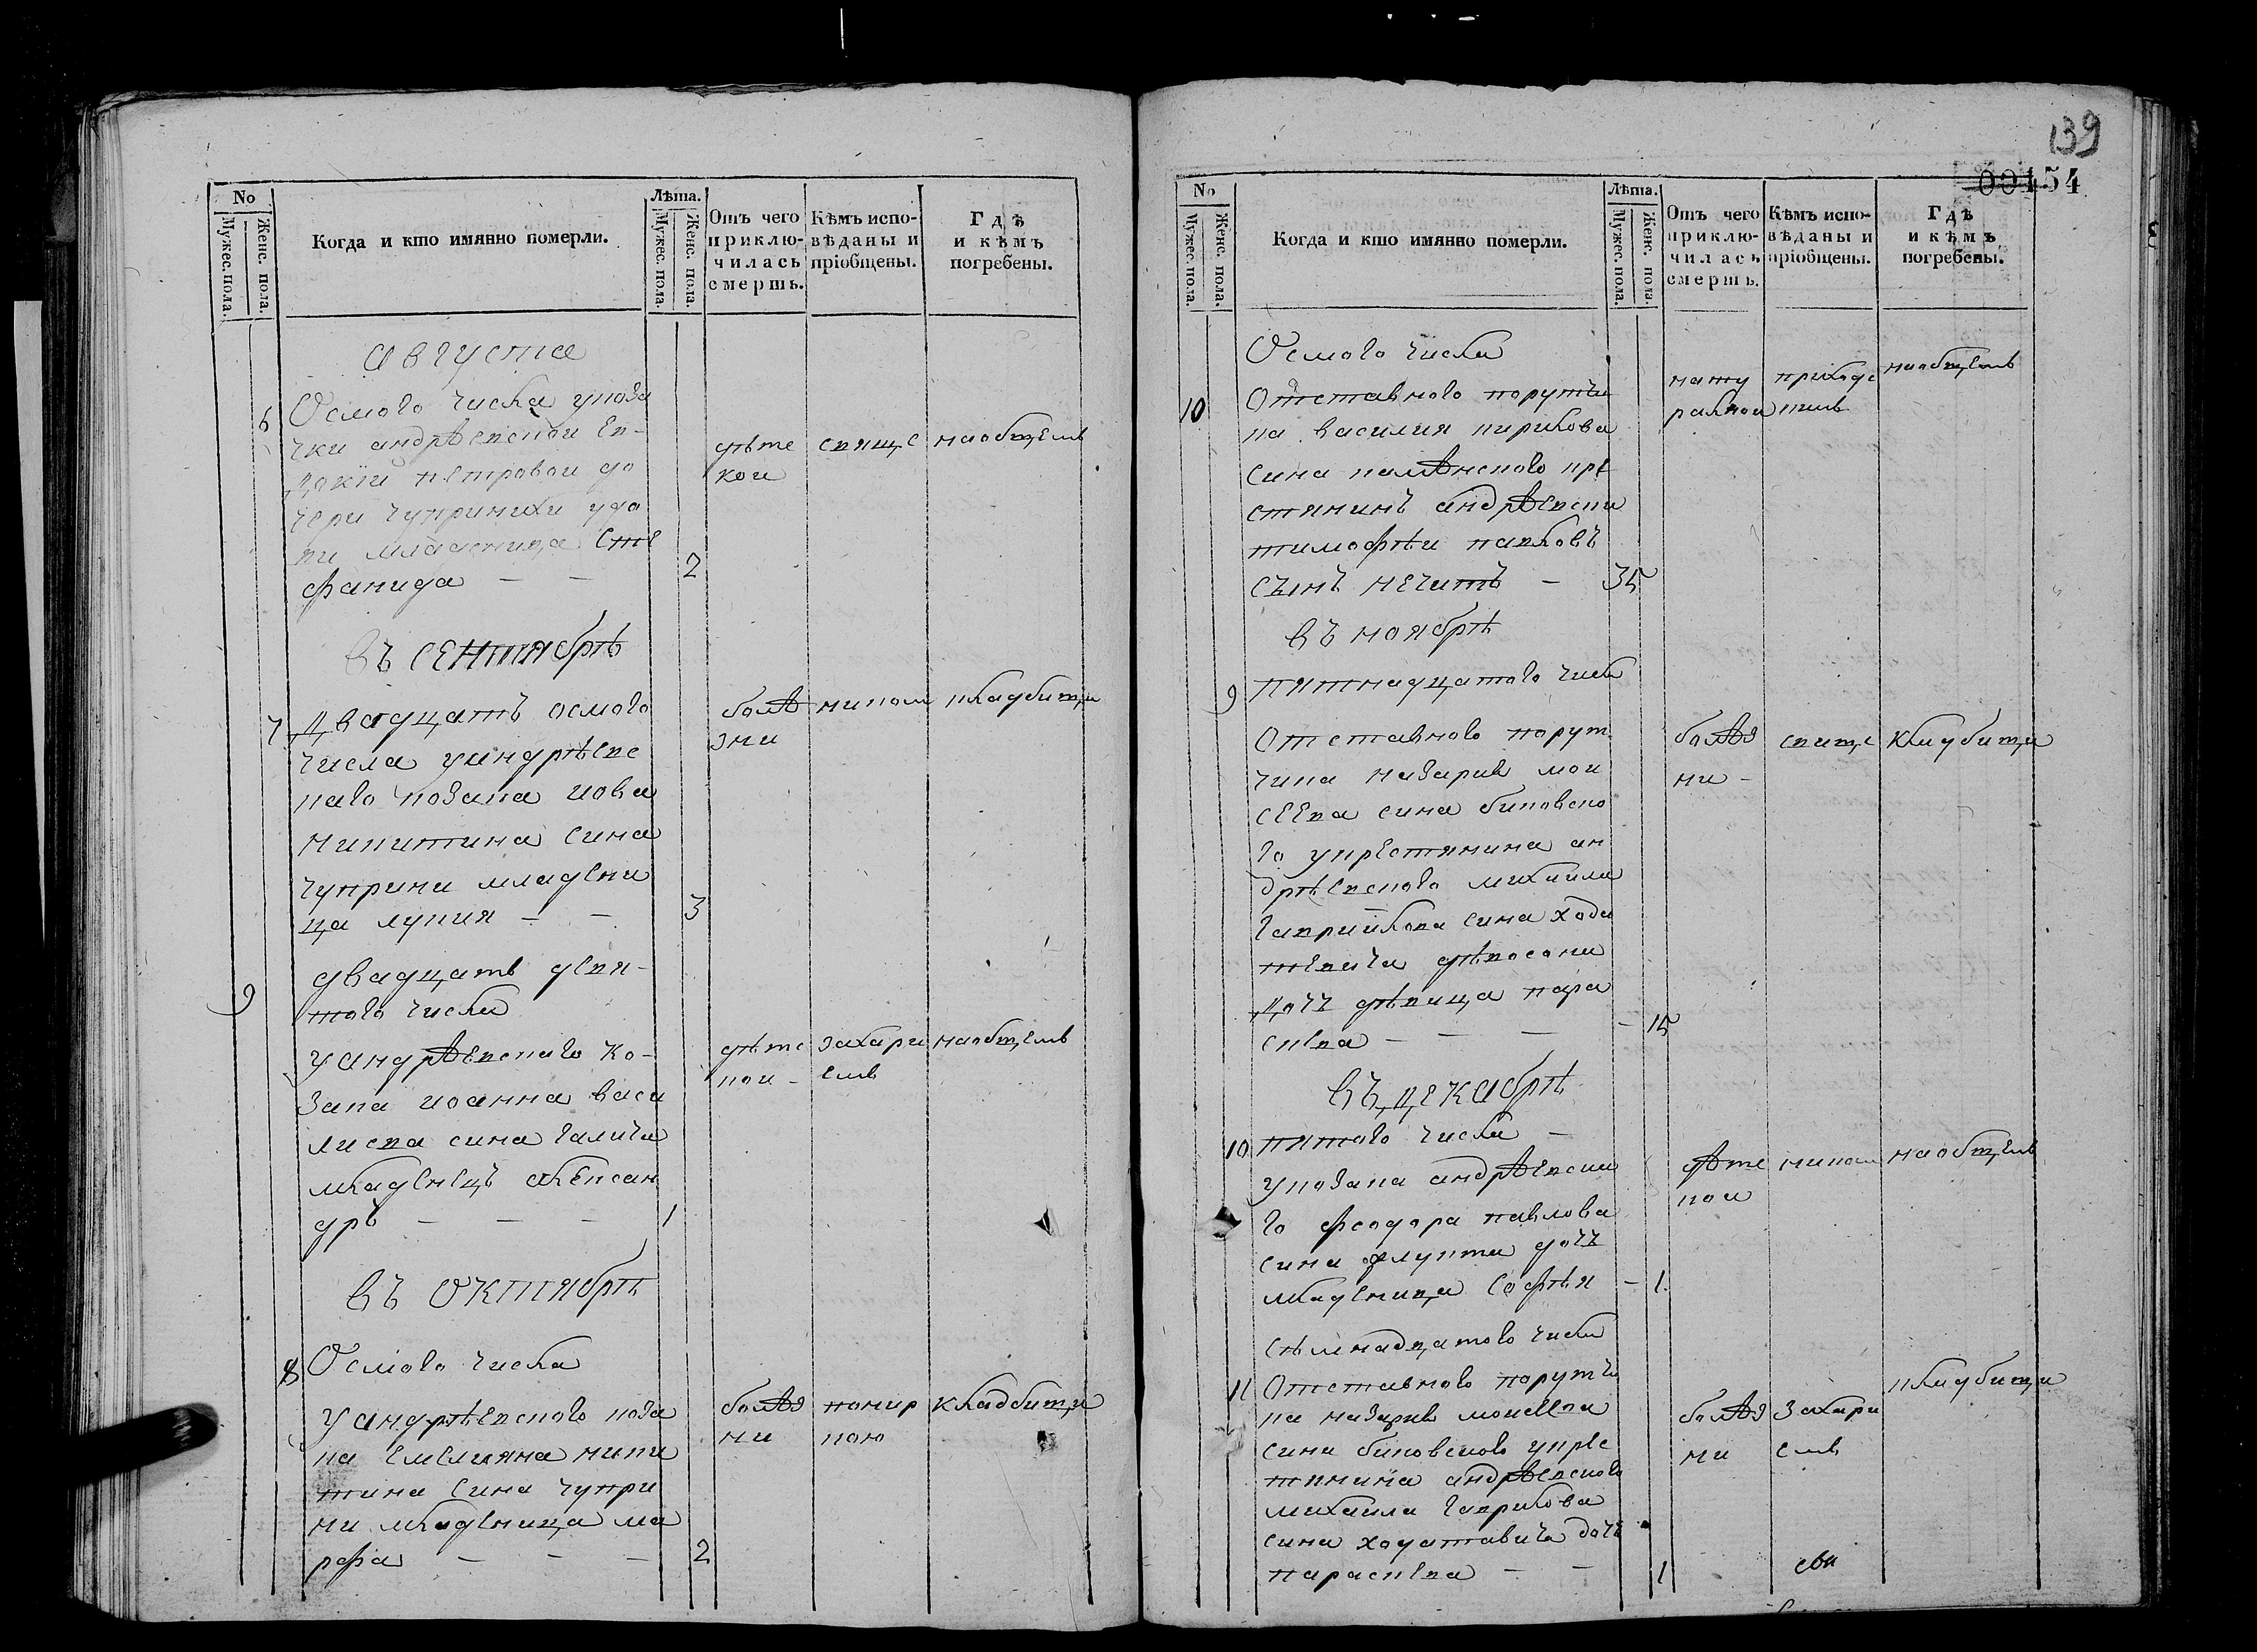 139
00454
No
Мужес. пола.
Женс. пола.
Когда и кто имянно померли.
Лѣта.
Мужес. пола.
Женс. пола.
Отъ чего приклю-
чилась смерть.
Кѣмъ испо-
вѣданы и
пріобщены.
Гдѣ
и кѣмъ
погребены.
августа
6 Осмого числа укоза
чки андрѣевской Ев-
докіи петровой до
чери чупринихи удо
ви младеница Сте
фанида — — 2
дѣтс
кой
свяще
наобщемъ
въ сентябрѣ
7 Двадцать осмого
числа уандрѣевс
каго козака иова
никитина сина
чуприни младени
ца лукия — — 3
болѣ
зни
кладбищи
9 двадцать девя-
того числа
уандрѣевскаго ко-
зака иоанна васи
лиева сина галича
младенецъ алексан
дръ — — — 1
дѣтс
кой -
захари
емъ
наобщемъ
въ октябрѣ
8 Осмого числа
уандрѣевского коза
ка емелияна ники
тина сина чупри
ни младеница ма
рфа — — — 2
болѣз
ни
кладбищи
No
Мужес. пола.
Женс. пола.
Когда и кто имянно померли.
Лѣта.
Мужес. пола.
Женс. пола.
Отъ чего приклю-
чилась смерть.
Кѣмъ испо-
вѣданы и
пріобщены.
Гдѣ
и кѣмъ
погребены.
Осмого числа
10 Отставного порутчи
ка василия кирилова
сина кре
стянинъ андрѣевски
тимофѣи павловъ
сынъ нечитъ — 35
нату
ралной
приходс
кимъ
наобщемъ
въ ноябрѣ
9 пятнадцатого числа
Отставного порут
чика назария мои
сеева сина биковско
го укрестянина ан
дрѣевского михаила
гавриилова сина хода
тевича
дочъ дѣвица пара
скева — — — 15
болѣз
ни -
свяще
кладбищи
въ декабрѣ
10 пятого числа —
укозака андрѣевски
го феодора павлова
сина дочъ
младеница софѣя — 1
дѣтс
кой
наобщемъ
сѣмнадцатого числа
11 Отставного порутчи
ка назария моисеева
сина биковского укрес
тянина андрѣевского
михаила гаврилова
сина ходатавича дочъ
параскева — — 1
болѣз
ни
захари
емъ
кладбищи